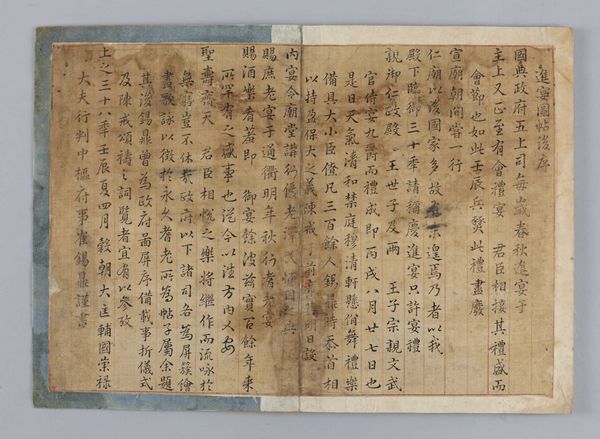 進宴圖帖後序
國典政府五上司每歲春秋進宴于
主上又正至有會禮宴 君臣相接其禮盛而
會節也如此壬辰兵燹此禮盡廢
宣廟朝間嘗一行
仁廟以後國家多故未遑焉乃者以我
殿下臨御三十年請稱慶進宴只許宴禮
親御仁政殿 王世子及兩 王子宗親文武
官侍宴九爵而禮成即丙戌八月廿七日也
是日天氣清和禁庭穆清軒懸佾舞禮樂
備具大小臣僚凡三百餘人錫鼎時忝首相
以持盈保大之義陳戒 前 明日設
內宴令廟堂講
賜庶老宴于通衢明年秋行耆老宴
賜酒樂耆羞即 御宴餘波玆實百餘年來
所罕有之盛事也從今以往方內乂安
聖壽齊天 君臣相悅之樂將繼作而流咏於
無窮豈不休哉政府以下諸司各為屏簇繪
畫歌詠以徵於永久耆老所為帖子屬余題
其後錫鼎曾為政府啚屏序備載事折儀式
及陳戒頌禱之詞覽者宜有以參攷
上之三十八年壬辰夏四月穀朝大匡輔國崇祿
大夫行判中樞府事崔錫鼎謹書